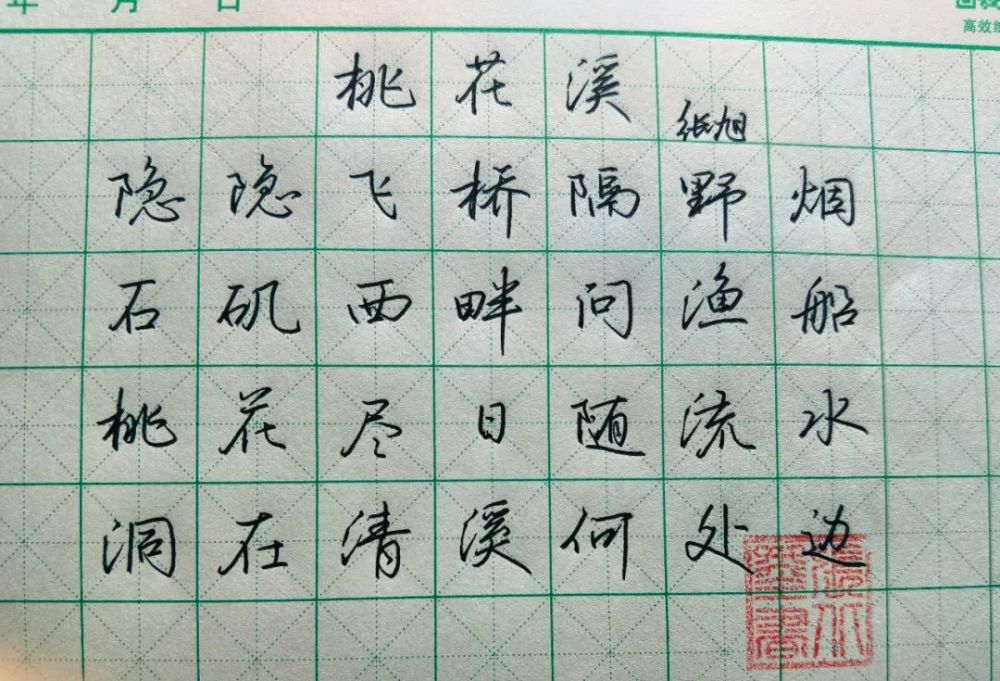 年 月 日
高效
桃花溪
张旭
隐隐飞桥隔野烟
石矶西畔问渔船
桃花尽日随流水
洞在清溪何处边